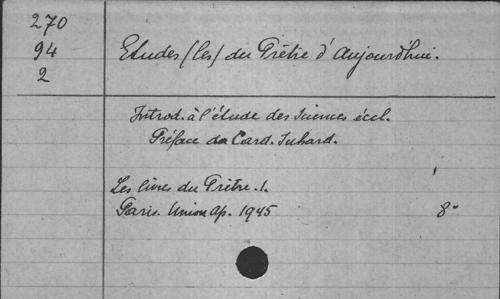 270
94
2
Etudes (les) du Prêtre d'Aujourd'hui.
Introd. à l'étude des Sciences éccl.
Préface du Card. Suhard.
Les livres du Prêtre. 1.
Paris. Union Ap. 1945 8°